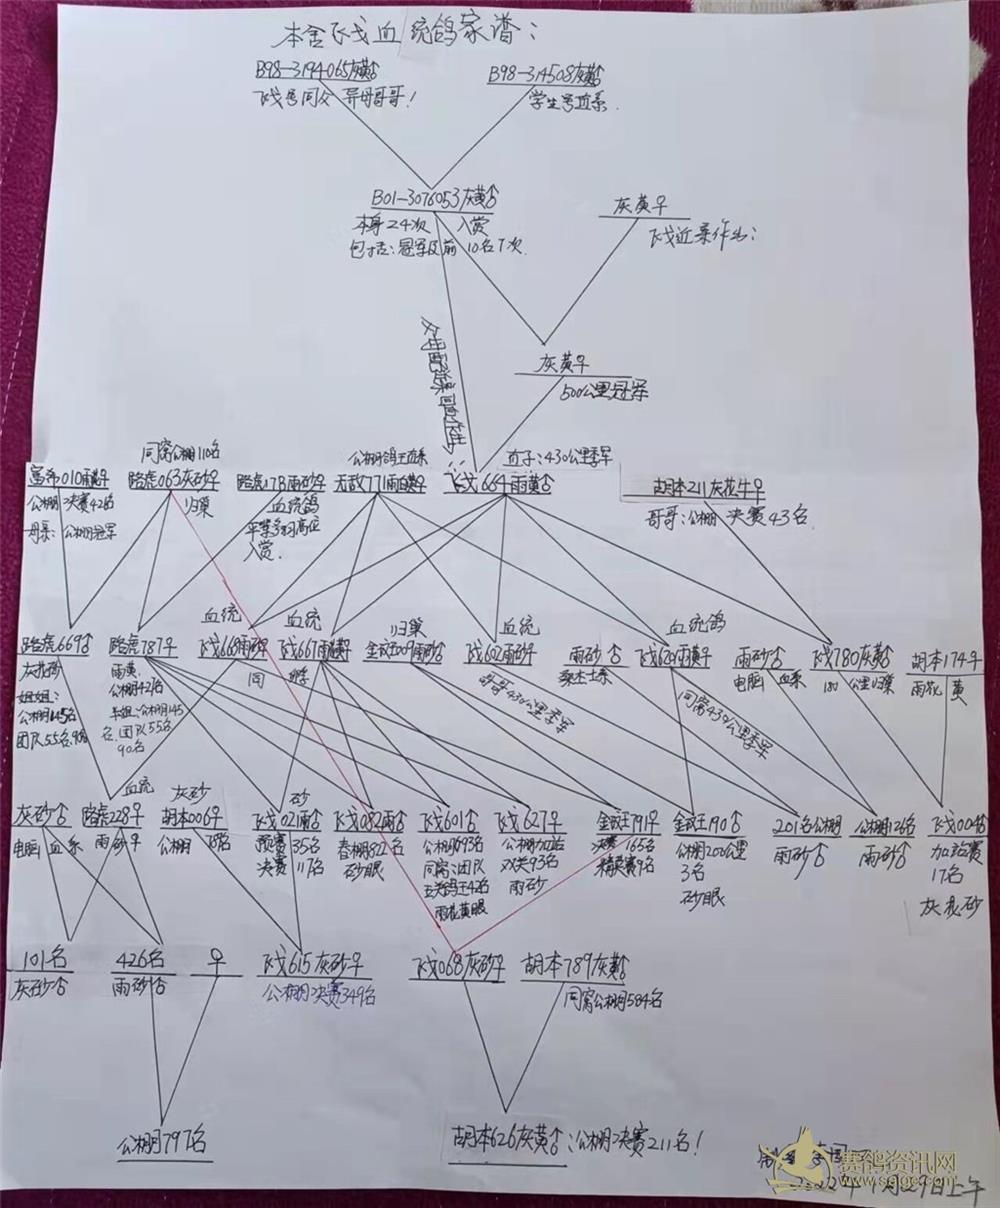 本舍飞戈血统鸽家谱：
B98-3194065灰黄♂
飞戈号同父异母哥哥！
B98-314508灰黄♂
学生号近系.
B01-3076053灰黄♂
本身24次入赏
包括：冠军及前10名7次.
灰黄♀
飞戈近亲作出；
灰黄♀
500公里冠军
直子：430公里季军
飞戈664雨黄♂
公棚鸽王直系
无敌771雨白黄♀
路虎178雨砂♀
血统鸽
入赏.
同窝公棚110名
路虎063灰砂♀
归巢
富希010雨黄♀
公棚决赛42名
母亲：公棚冠军
胡本211灰花牛♀
哥哥：公棚决赛43名.
路虎669♂
灰花砂
姐姐：
公棚145名
团队55名.90名
路虎787♀
雨黄.
公棚42名
公棚145
名.团队55名
90名
血统
飞戈668雨砂♀
血统
飞戈667雨黄♀
同
归巢
金武王009雨砂♂
血统
飞戈602雨砂♀
哥哥430公里季军
雨砂♂
桑杰士系
血统鸽
飞戈620雨黄♀
同窝430公里季军
雨砂♂
电脑血系
飞戈780灰黄♂
180公里归巢
胡本174♀
雨花黄
灰砂♂
电脑血系
血统
路虎228♀
雨砂♀
灰砂
胡本006♀
公棚78名
砂
飞戈021雨♂
预赛35名
决赛117名
飞戈082雨♂
春棚802名
砂眼
飞戈601♂
公棚693名
同窝：团队
五关鸽王42名
雨花黄眼
飞戈627♀
公棚加站
双关93名
雨砂
金武王791♀
决赛165名
精英赛9名
金武王190♂
公棚200公里
3名
砂眼
201名公棚
雨砂♂
公棚126名
雨砂♂
飞戈004♂
加站赛
17名
灰花砂
101名
灰砂♂
426名
雨砂♂
♀
飞戈615灰砂♀
公棚决赛349名
飞戈068灰砂♀
胡本789灰黄♂
同窝公棚584名
公棚797名
胡本626灰黄♂：公棚决赛211名！
赛鸽资讯网
www.saige.com
29日上午